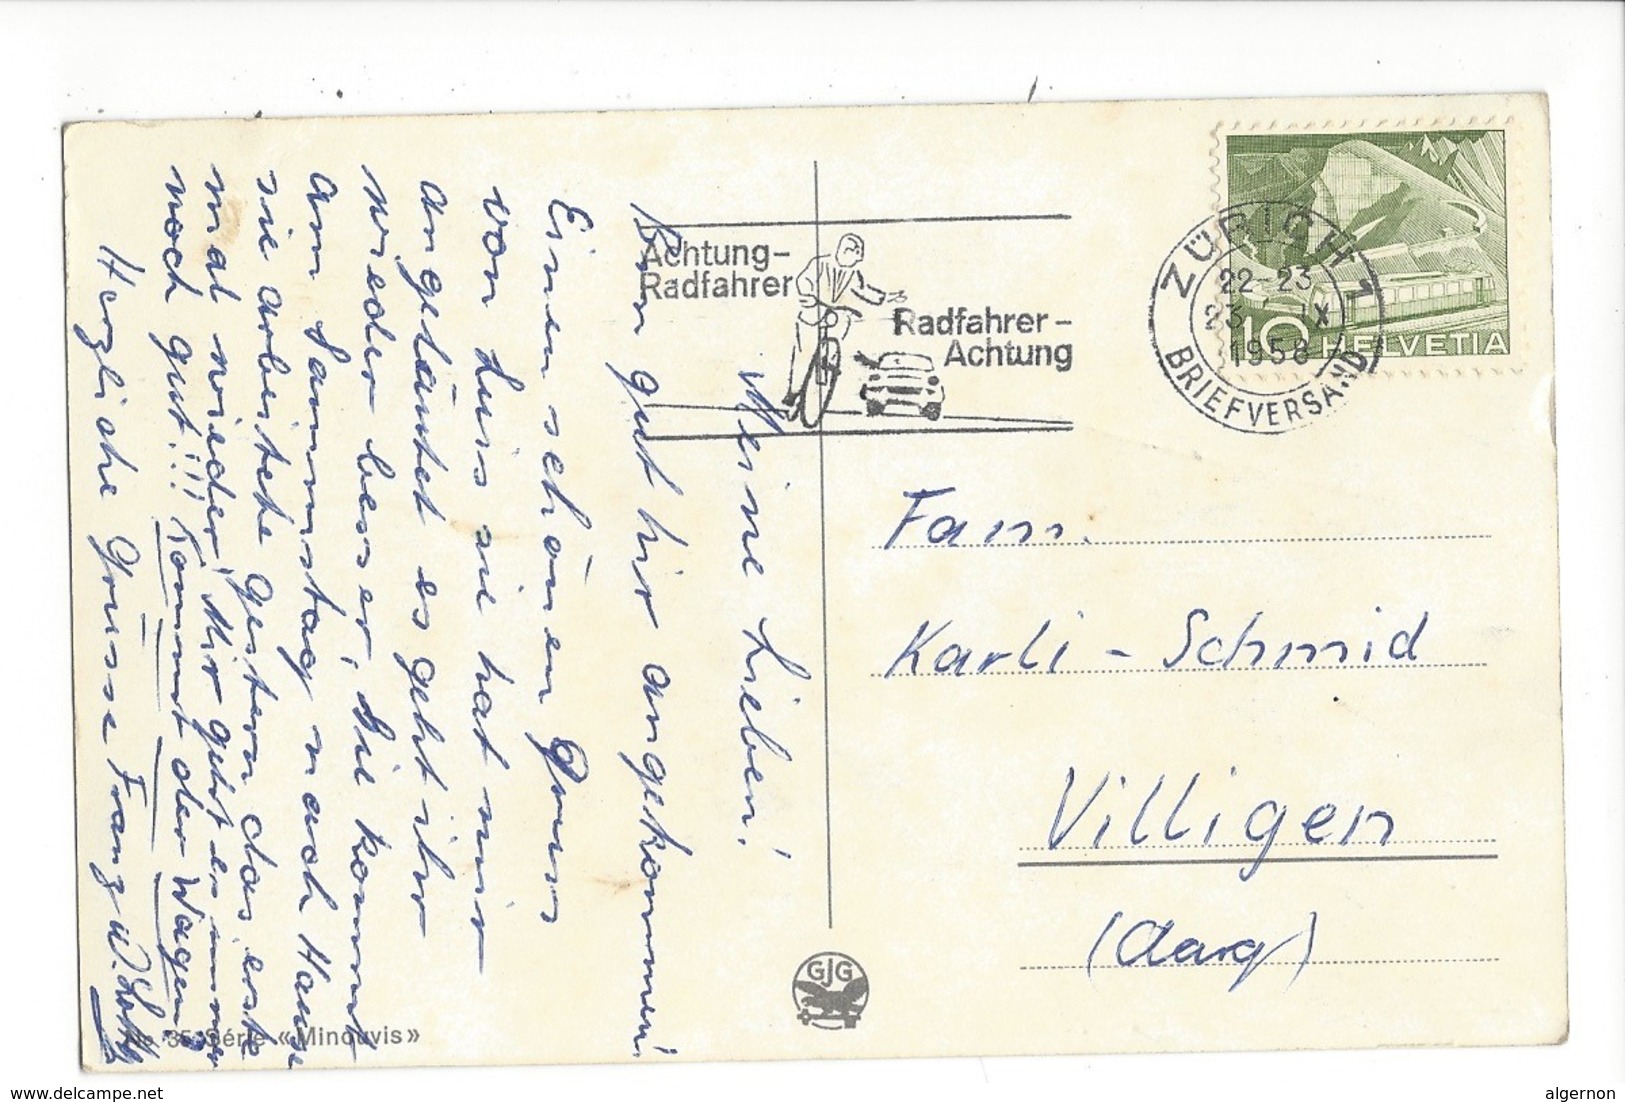 Meine Lieben!
Bin gut hir angekommen!
Einen schönen Gruss
von Luis sie hat mir
angeläutet es geht ihr
wieder besser, Sie kommt
am Sammstag nach Hause
sie arbeitete gestern das erste
mal wieder, Mir geht es immer
noch gut!!! Kommt der Wagen
Herzliche Grüsse Franz u.
Achtung-
Radfahrer
Radfahrer-
Achtung
ZÜRICH 1
22-23
23. IX
1958
BRIEFVERSAND
10 HELVETIA
Fam.
Karli - Schmid
Villigen
(Aarg)
GJG
No. 35 Série «Minouvis»
delcampe.net
algernon